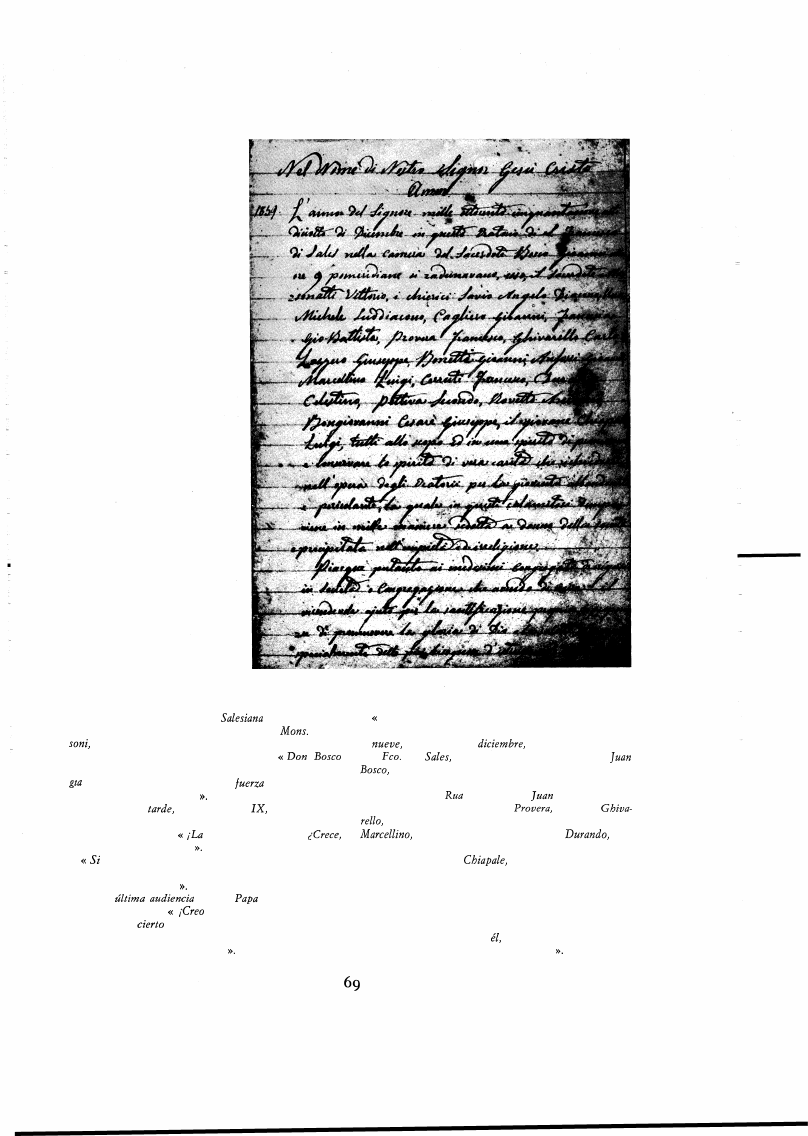 Nel Nome di Nostro Signor Gesù Cristo
Amen
1859 L'anno del Signore mille ottocento cinquantanove
diciotto di Dicembre in questo Oratorio di S.
di Sales nella camera del Sacerdote Bosco
ore 9 pomeridiane si radunavano, esso, il Sacerdote
Vittorio, i chierici Savio Angelo
Michele Suddiacono, Cagliero Giovanni,
Gio Battista, Provera Francesco, Ghivarello Carlo
Lazzero Giuseppe, Bonetti Giovanni,
Marcellino Luigi, Cerruti Francesco,
Celestino, Pettiva Secondo, Rovetto
Bongiovanni Cesare Giuseppe, il giovane
Luigi, tutti allo scopo ed in uno spirito di
e conservare lo spirito di vera carità che
nell'opera degli Oratorii per la gioventù
e pericolante, la quale in questi calamitosi
viene in mille maniere sedotta a danno della
e precipitata nell'empietà ed irreligione.
Piacque pertanto ai medesimi
in Società o Congregazione che avendo
vicendevole ajuto per la santificazione
di promuovere la gloria di Dio
specialmente delle più bisognose d'
Salesiana «
Mons.
soni, nueve, diciembre,
« Don Bosco Fco. Sales, Juan
Bosco,
gia fuerza
». Rua Juan
tarde, IX, Provera, Ghiva-
rello,
« ¡La ¿Crece, Marcellino, Durando,
».
« Si Chiapale,
».
última audiencia Papa
« ¡Creo
cierto
él,
». ».
69